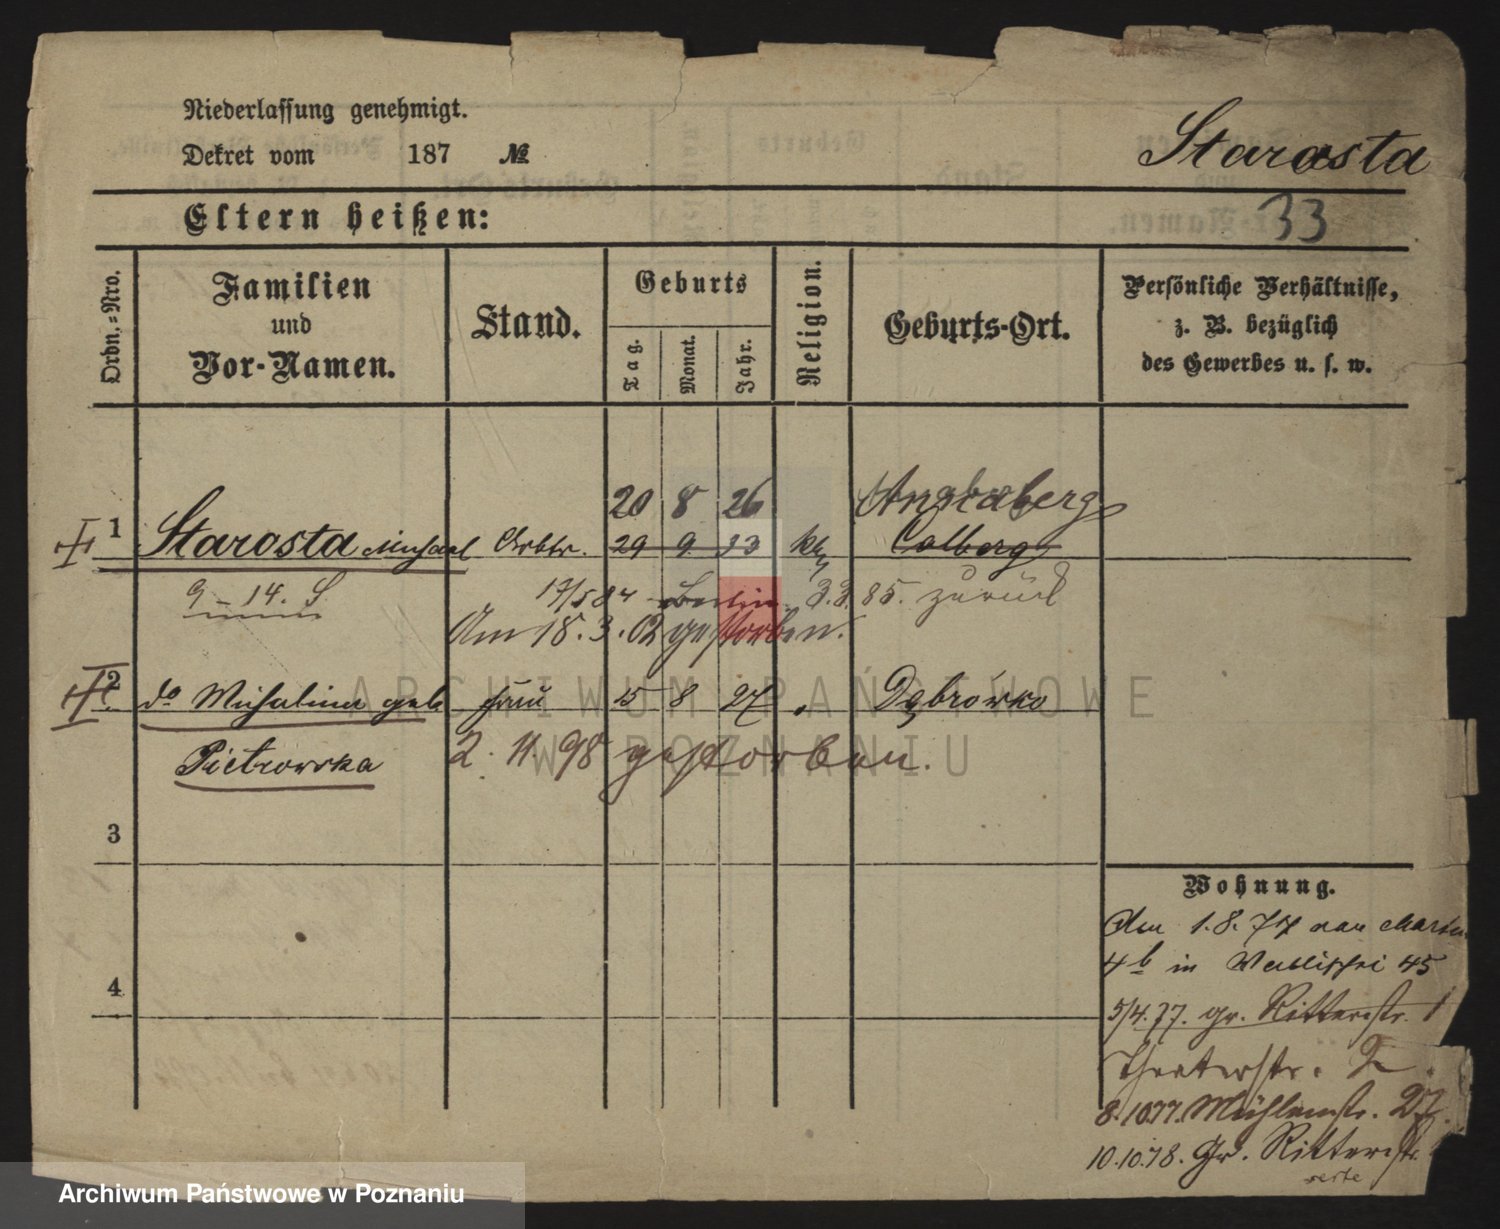 Niederlassung genehmigt.
Dekret vom 187 №
Starosta
Eltern heißen:
33
Ordn.=Nro.
Familien
und
Vor-Namen.
Stand.
Geburts
Tag.
Monat.
Jahr.
Religion.
Geburts-Ort.
Persönliche Verhältnisse,
z. B. bezüglich
des Gewerbes u. s. w.
20 8 26
1 Starosta Michael Arbtr. 29 9 23 kth Colberg
9 - 14. S
17/5 84 Berlin 3.3.85. zurück
Am 18.3.02 gestorben.
2 do Michalina geb. Frau 15 8 27 Dąbrówko
Pietrowska 2. 11. 98 gestorben.
3
4
Wohnung.
Am 1.8.77 von
4b in Wallischei 45
5/4.77. gr. Ritterstr. 1
Theaterstr. 2
8.10.77. Mühlenstr. 27.
10.10.78. Gr. Ritterstr.
ARCHIWUM PAŃSTWOWE
W POZNANIU
Archiwum Państwowe w Poznaniu